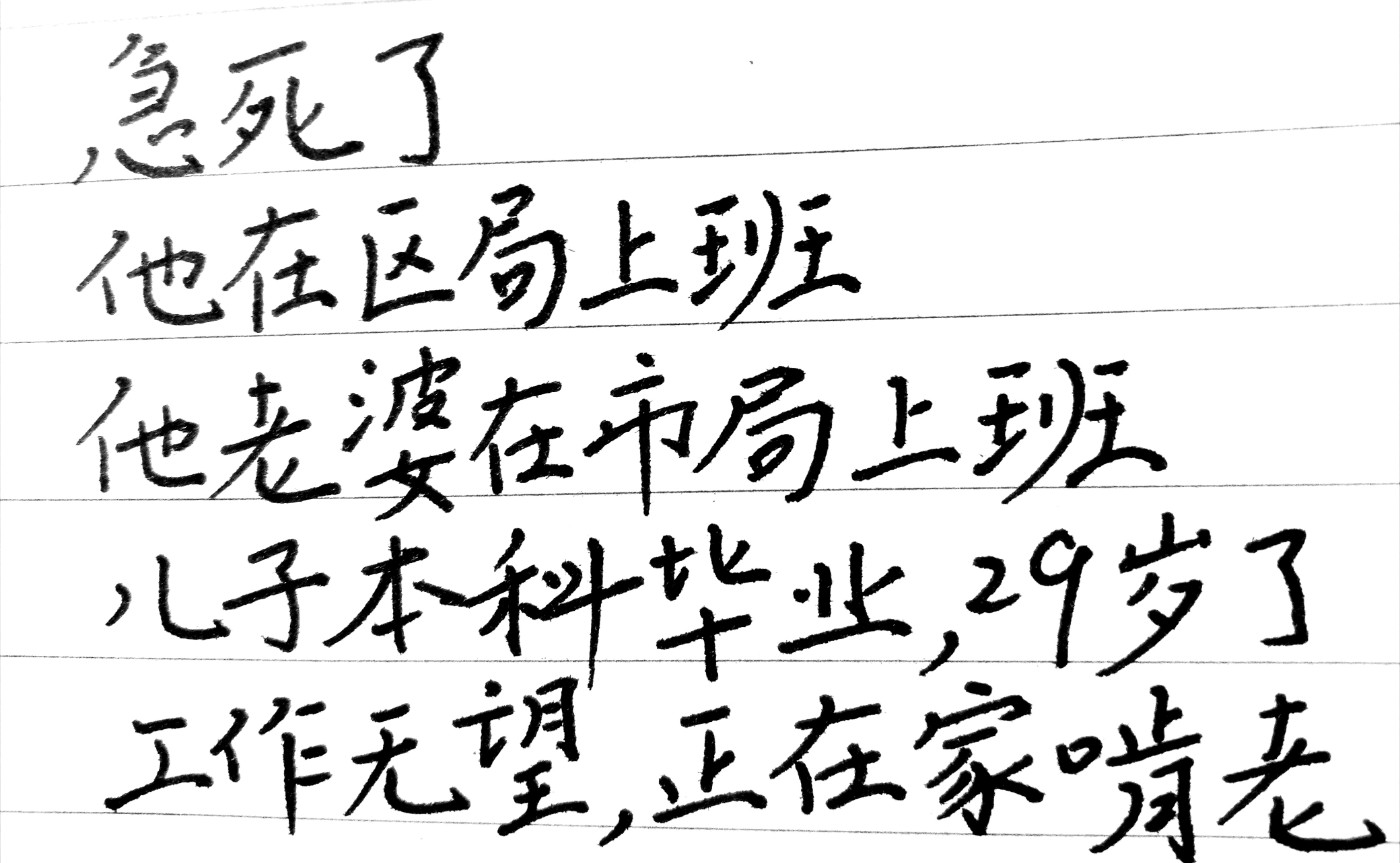 急死了
他在区局上班
他老婆在市局上班
儿子本科毕业,29岁了
工作无望,正在家啃老